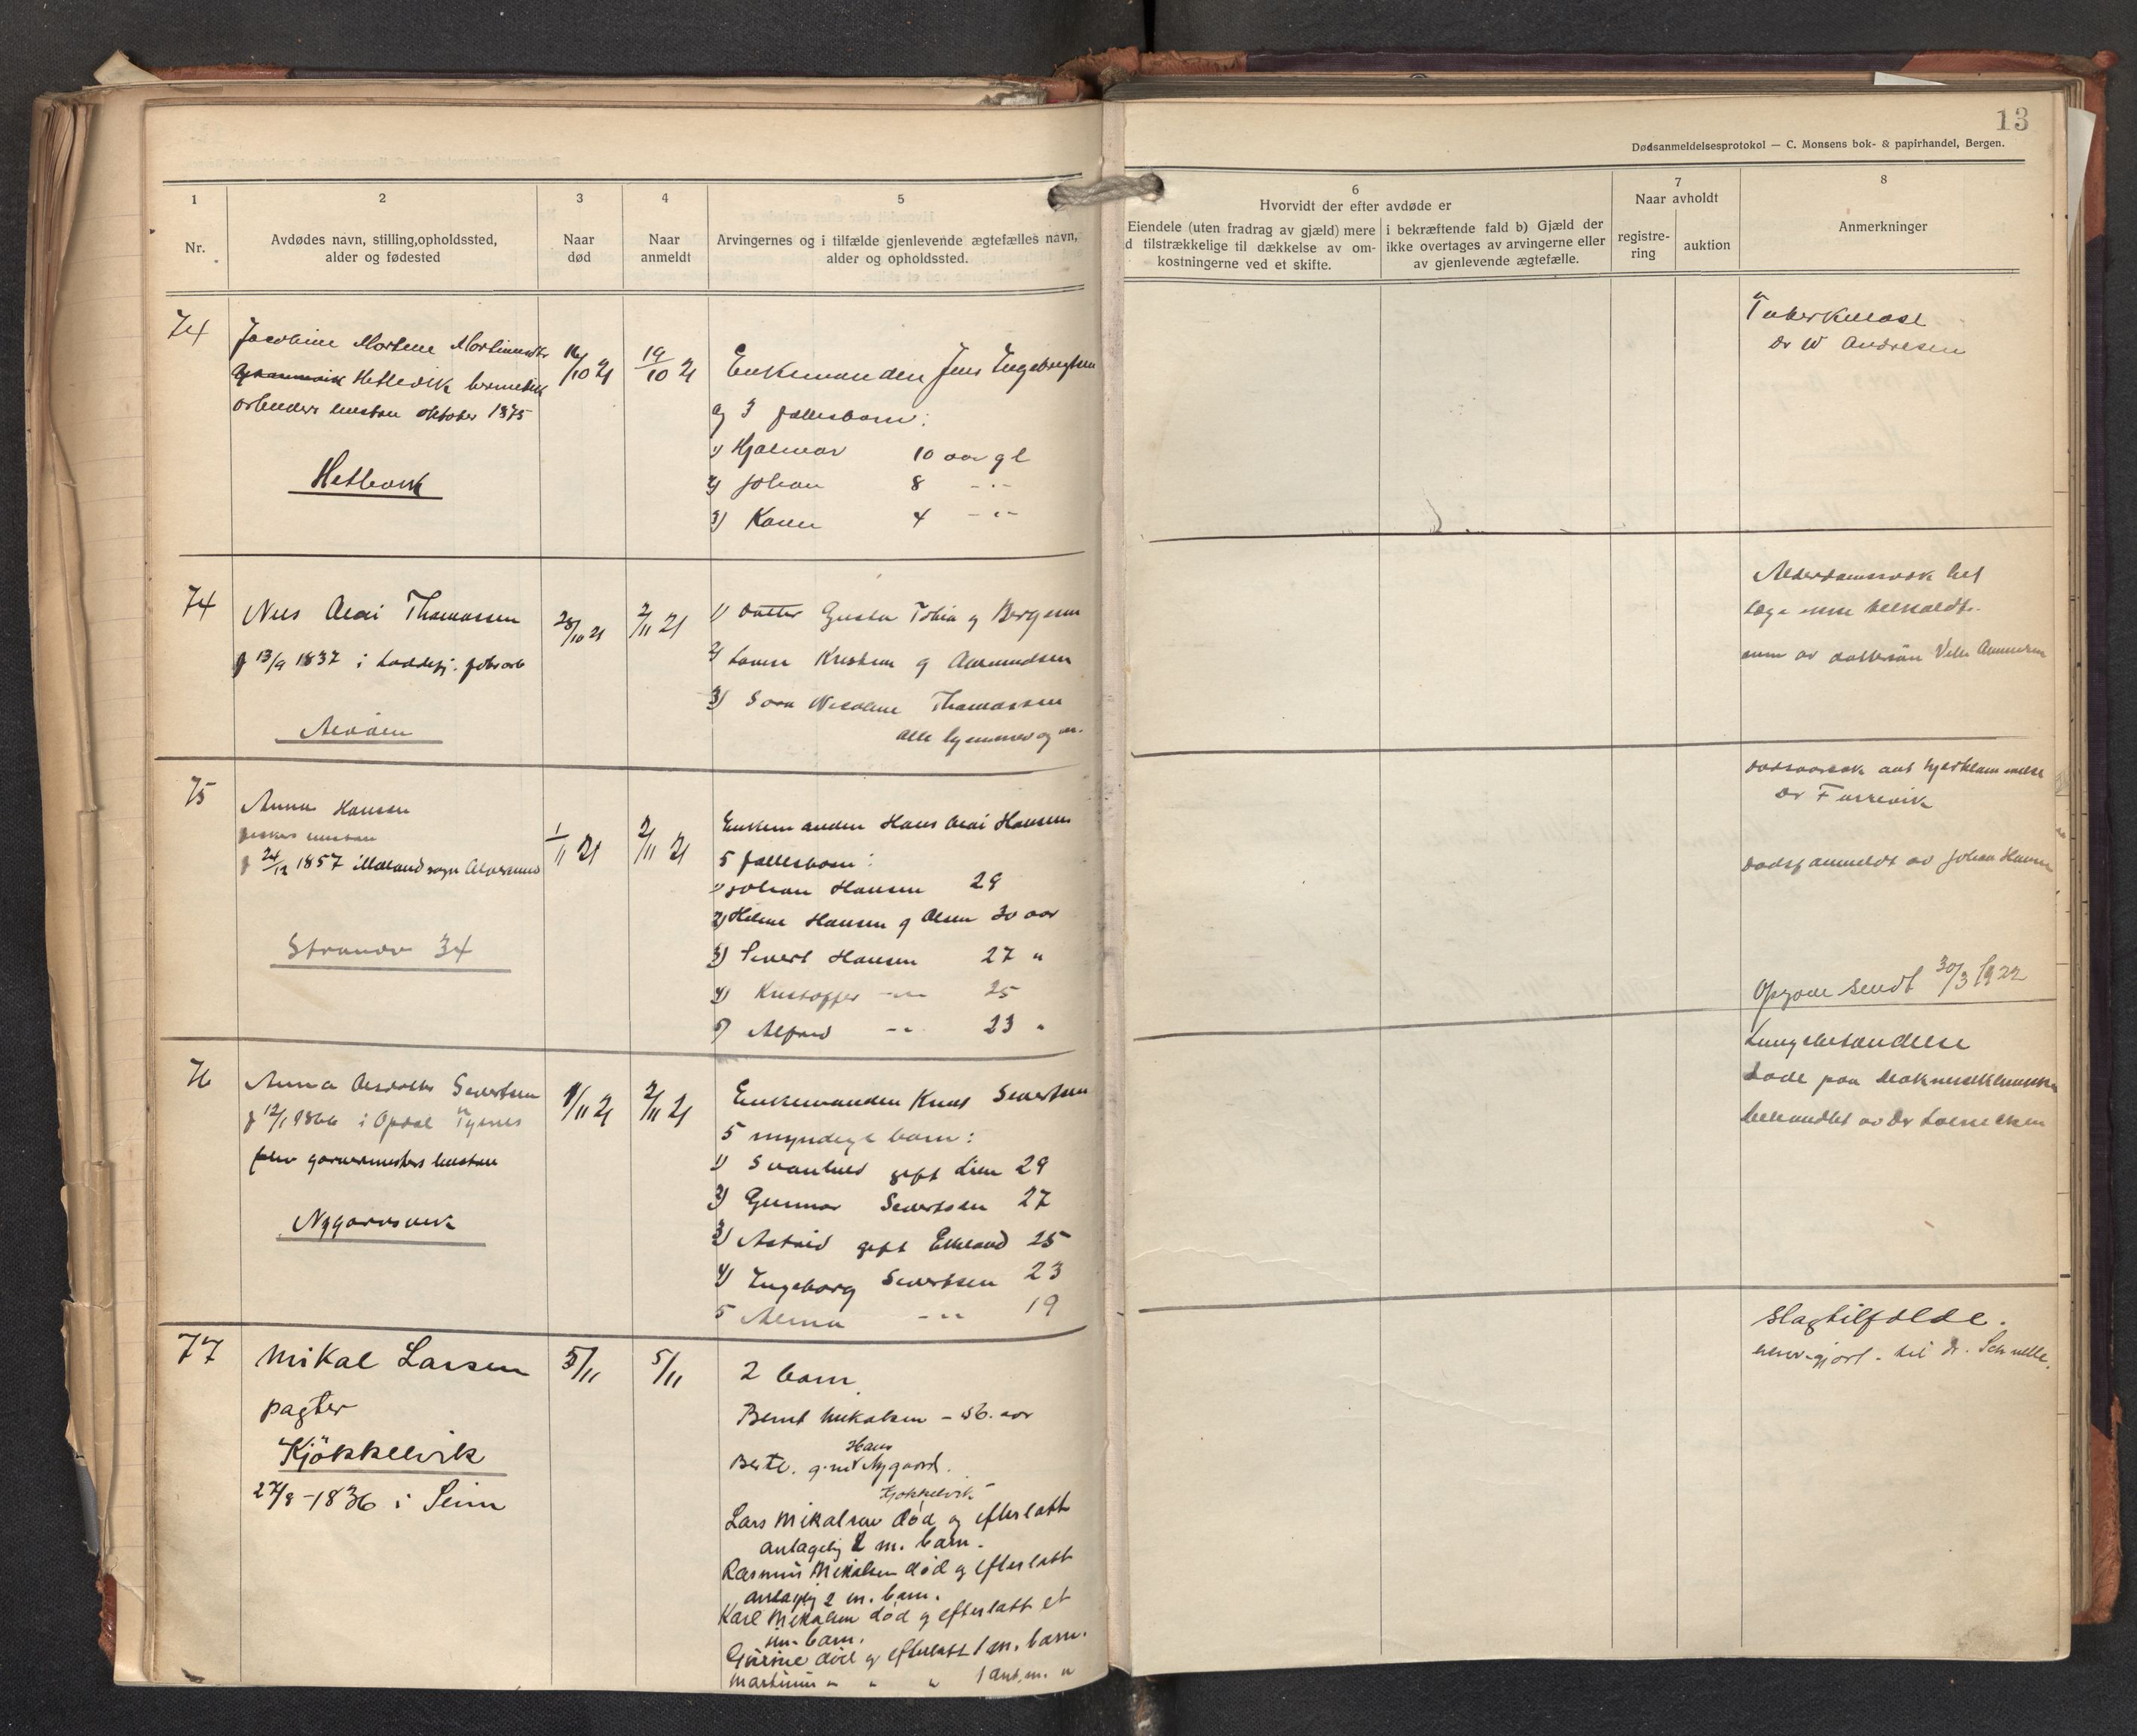 13
Dødsanmeldelsesprotokol — C. Monsens bok- & papirhandel, Bergen.
1
Nr.
2
Avdødes navn, stilling, opholdssted,
alder og fødested
3
Naar
død
4
Naar
anmeldt
5
Arvingernes og i tilfælde gjenlevende ægtefælles navn,
alder og opholdssted.
6
Hvorvidt der efter avdøde er
Eiendele (uten fradrag av gjæld) mere
d tilstrækkelige til dækkelse av om-
kostningerne ved et skifte.
i bekræftende fald b) Gjæld der
ikke overtages av arvingerne eller
av gjenlevende ægtefælle.
7
Naar avholdt
registre-
ring
auktion
8
Anmerkninger
74
Jacobine Mortene
Hetlevik
hustru oktober 1875
Hetlevik
16/10 21
19/10 21
Enkemanden Jens Ingebregtsen
og 3 fællesbarn:
1) Hjalmar 10 aar gl
2) Johan 8 -"-
3) Karen 4 -"-
Tuberkulose
Dr W Andresen
74
Nils Olai Thomassen
f 13/9 1837 i
28/10 21
2/11 21
1) datter Gusta Tobia g Bergsen
2) g Aamundsen
3) Nicoline Thomassen
alle
Alderdomssvak het
læge
av dattersøn
75
Anna Hansen
fiskers hustru
f 24/12 1857 sogn Alversund
Strandv 34
1/11 21
2/11 21
Enkemanden Hans Olai Hansen
5 fællesbarn:
1) Johan Hansen 29
2) Helene Hansen g Olsen 30 aar
3) Sivert Hansen 27 "
4) Kristoffer -"- 25
5) Alfred -"- 23 "
Dr
dødsf anmeldt av Johan Hansen
Opgave sendt 30/3 1922
76
Anna Sivertsen
f 12/1 1866 i Opdal Tysnes
garvermesters hustru
Nygaardsvik
1/11 21
2/11 21
Enkemanden Knut Sivertsen
5 myndige barn:
1) Svanhild gift Lien 29
2) Gunnar Sivertsen 27
3) Astrid gift Ekeland 25
4) Ingeborg Sivertsen 23
5 Alma -"- 19
Lungebetændelse
Døde paa
behandlet av Dr
77
Mikal Larsen
pagter
Kjøkkelvik
27/8 - 1836 i Seim
5/11
5/11
2 barn
Bernt Mikalsen - 56. aar
Hans
Berte. g.m. Nygaard.
Kjøkkelvik
Lars Mikalsen død og efterlatt
antagelig 2 m. barn.
Rasmus Mikalsen død og efterlatt
antagelig 2 m. barn.
Karl Mikalsen død og efterlatt et
um. barn.
død og efterlatt 1 m. barn.
Martinus " " " 1 ant. m. "
Slagtilfælde.
til dr. Schnelle.